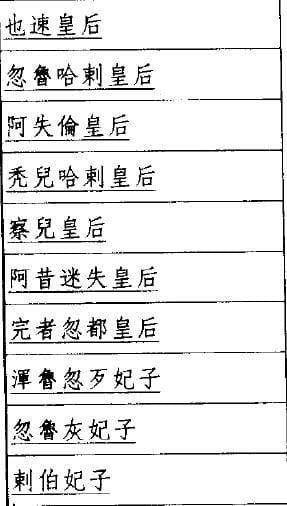 也速皇后
忽魯哈剌皇后
阿失倫皇后
禿兒哈剌皇后
察兒皇后
阿昔迷失皇后
完者忽都皇后
渾魯忽歹妃子
忽魯灰妃子
剌伯妃子